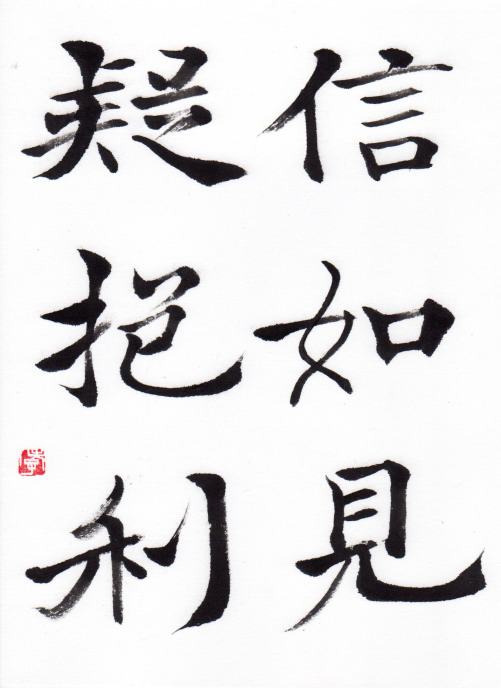 信如見
疑挹利